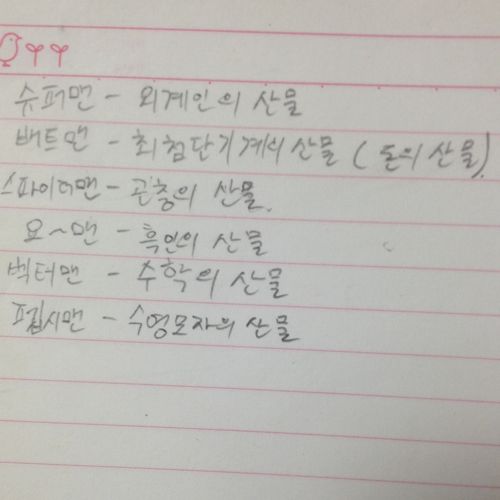 슈퍼맨 - 외계인의 산물
배트맨 - 최첨단기계의 산물 (돈의 산물)
스파이더맨 - 곤충의 산물.
요~맨 - 흑인의 산물
벡터맨 - 수학의 산물
프랍시맨 - 수영모자의 산물